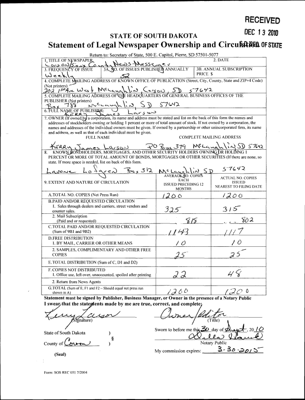 RECEIVED
DEC 13 2010
S.D. SEC. OF STATE
STATE OF SOUTH DAKOTA
Statement of Legal Newspaper Ownership and Circulation
Return to: Secretary of State, 500 E. Capitol, Pierre, SD 57501-5077
1. TITLE OF NEWSPAPER
2. DATE
3. FREQUENCY OF ISSUE
3A. NO. OF ISSUES PUBLISHED ANNUALLY
3B. ANNUAL SUBSCRIPTION PRICE $
Weekly
52
4. COMPLETE MAILING ADDRESS OF KNOWN OFFICE OF PUBLICATION (Street, City, County, State and ZIP+4 Code) (Not printers)
McLaughlin Corson SD 57642
5. COMPLETE MAILING ADDRESS OF THE HEADQUARTERS OF GENERAL BUSINESS OFFICES OF THE PUBLISHER (Not printers)
McLaughlin, SD 57642
6. FULL NAME OF PUBLISHER:
7. OWNER (If owned by a corporation, its name and address must be stated and also the names and addresses of stockholders owning or holding 1 percent or more of total amount of stock. If not owned by a corporation, the names and addresses of the individual owners must be given. If owned by a partnership or other unincorporated firm, its name and address, as well as that of each individual must be given.
FULL NAME
COMPLETE MAILING ADDRESS
McLaughlin SD 57642
8. KNOWN BONDHOLDERS, MORTGAGEES, AND OTHER SECURITY HOLDERS OWNING OR HOLDING 1 PERCENT OR MORE OF TOTAL AMOUNT OF BONDS, MORTGAGES OR OTHER SECURITIES (If there are none, so state. If more space is needed, list on back of this form.
McLaughlin SD 57642
9. EXTENT AND NATURE OF CIRCULATION
AVERAGE NO. COPIES EACH ISSUED PRECEDING 12 MONTHS
ACTUAL NO. COPIES ISSUED NEAREST TO FILING DATE
A. TOTAL NO. COPIES (Net Press Run)
1200
1200
B. PAID AND/OR REQUESTED CIRCULATION
1. Sales through dealers and carriers, street vendors and counter sales.
325
315
2. Mail Subscription (Paid and or requested)
818
802
C. TOTAL PAID AND/OR REQUESTED CIRCULATION (Sum of 9B1 and 9B2)
1143
1117
D. FREE DISTRIBUTION
1. BY MAIL, CARRIER OR OTHER MEANS
10
10
2. SAMPLES, COMPLIMENTARY AND OTHER FREE COPIES
25
25
E. TOTAL DISTRIBUTION (Sum of C, D1 and D2)
F. COPIES NOT DISTRIBUTED
1. Office use, left over, unaccounted, spoiled after printing
22
48
2. Return from News Agents
G. TOTAL (Sum of E, F1 and F2 - Should equal net press run shown in A)
1200
1200
Statement must be signed by Publisher, Business Manager, or Owner in the presence of a Notary Public
I swear that the statements made by me are true, correct, and complete:
(Signature)
(Title)
State of South Dakota )
County of Corson )
(Seal)
Sworn to before me this 30 day of Sept, 2010
Notary Public
My commission expires: 3-30-2015
Form: SOS REC 051 7/2004